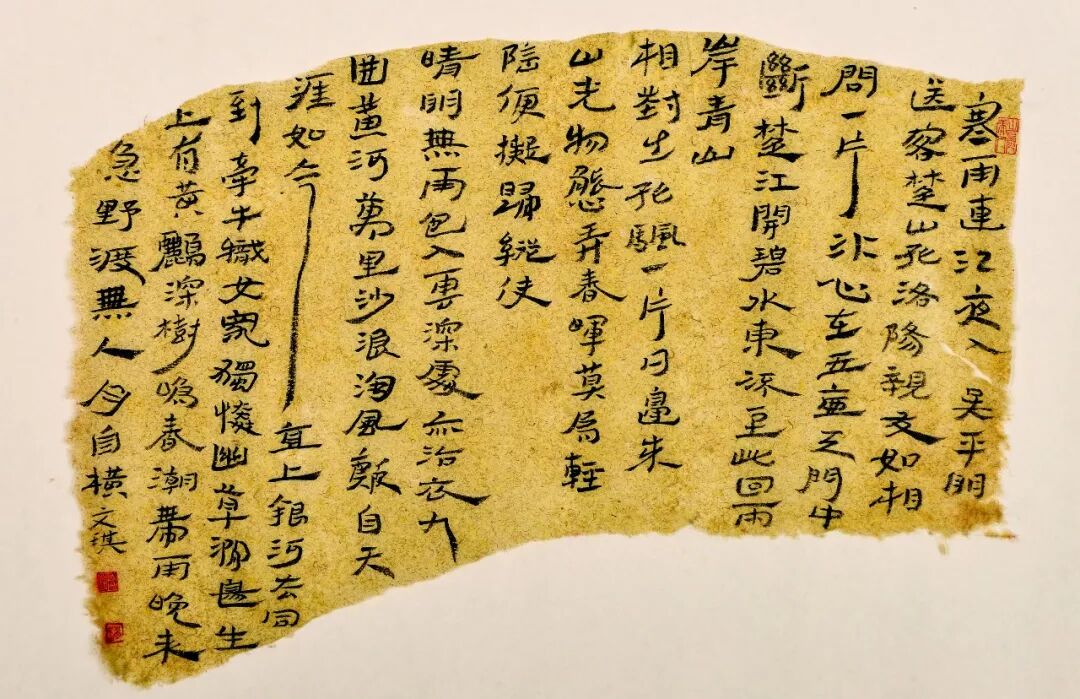 寒雨連江夜入吴平明
送客楚山孤洛陽親友如相
問一片冰心在玉壺天門中
斷楚江開碧水東流至此回兩
岸青山
相對出孤颿一片日邊來
山光物態弄春暉莫爲輕
陰便擬歸縱使
晴明無雨色入雲深處亦沾衣九
曲黃河萬里沙浪淘風自天
涯如今直上銀河去同
到牽牛織女家獨憐幽草澗邊生
上有黃鸝深樹鳴春潮帶雨晚來
急野渡無人舟自橫文琪